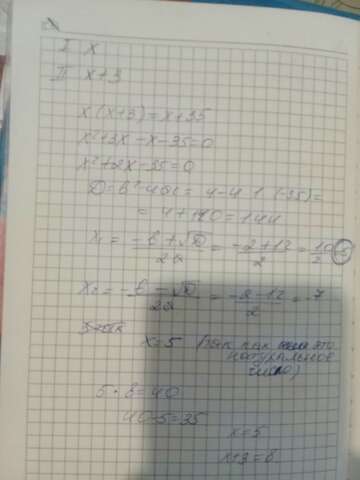 I x
II x+3
x(x+3)=x+35
x²+3x-x-35=0
x²+2x-35=0
D=b²-4ac= 4-4·1·(-35)=
= 4+140=144
x₁ = -b+√D/2a = -2+12/2 = 10/2 = 5
x₂ = -b-√D/2a = -2-12/2 = -7
x=5 (так как это
натуральное
число)
5·8=40
40-5=35
x=5
x+3=8